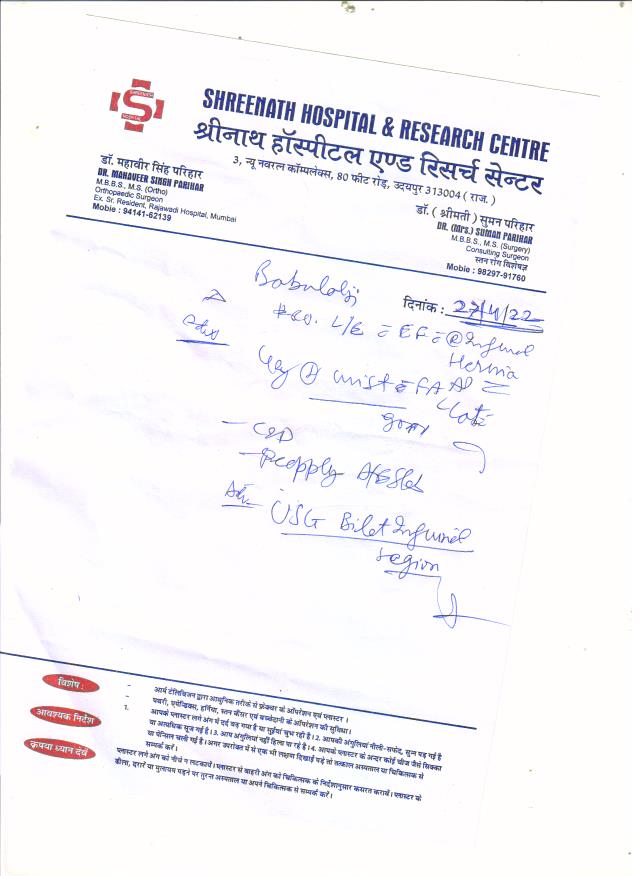 SHREENATH HOSPITAL & RESEARCH CENTRE
श्रीनाथ हॉस्पीटल एण्ड रिसर्च सेन्टर
3, न्यू नवरत्न कॉम्पलेक्स, 80 फीट रोड़, उदयपुर 313004 ( राज. )
डॉ. महावीर सिंह परिहार
DR. MAHAVEER SINGH PARIHAR
M.B.B.S., M.S. (Ortho)
Orthopaedic Surgeon
Ex. Sr. Resident, Rajawadi Hospital, Mumbai
Mobie : 94141-62139
डॉ. ( श्रीमती ) सुमन परिहार
DR. (Mrs.) SUMAN PARIHAR
M.B.B.S., M.S. (Surgery)
Consulting Surgeon
स्तन रोग विशेषज्ञ
Mobie : 98297-91760
दिनांक : 27/4/22
Babulalji
Inguinal
Hernia
Adv
wrist
- Reapply
Adv. USG Bilat Inguinal
region
विशेष :
- आर्म टेलिविजन द्वारा आधुनिक तरीके से फ्रेक्चर के ऑपरेशन एवं प्लास्टर ।
- पथरी, एपेन्डिक्स, हर्निया, स्तन कैंसर एवं बच्चेदानी के ऑपरेशन की सुविधा।
आवश्यक निर्देश
1. आपके प्लास्टर लगे अंग में दर्द बढ़ गया है या सुईयां चुभ रही हो। 2. आपकी अंगुलियां नीली-सफेद, सुन्न पड़ गई है
या अत्यधिक सूज गई है। 3. आप अंगुलियां नहीं हिला पा रहे है। 4. आपके प्लास्टर के अन्दर कोई चीज जैसे सिक्का
या पेन्सिल चली गई है। अगर उपरोक्त में से एक भी लक्षण दिखाई पड़े तो तत्काल अस्पताल या चिकित्सक से
सम्पर्क करें।
कृपया ध्यान देवें
प्लास्टर लगे अंग को नीचे न लटकावें। प्लास्टर से बाहरी अंग को चिकित्सक के निर्देशानुसार कसरत करावें। प्लास्टर के
ढीला, दरारें या मुलायम पड़ने पर तुरन्त अस्पताल या अपने चिकित्सक से सम्पर्क करें।